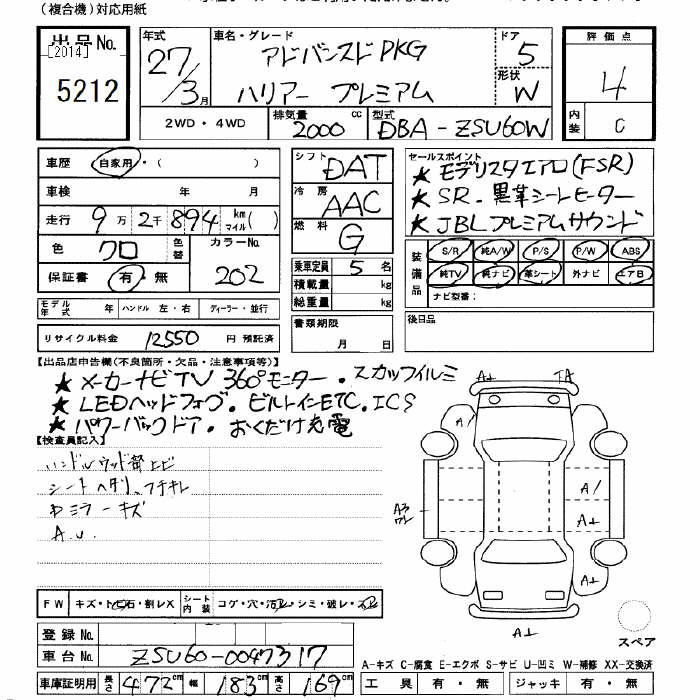 (複合機)対応用紙
出品No.
[2014]
5212
年式
27/3月
車名・グレード
アドバンスドPKG
ハリアー プレミアム
ドア
5
形状
W
評価点
4
内装
C
2WD・4WD
排気量
2000cc
型式
DBA-ZSU60W
車歴 自家用・( )
車検 年 月
走行 9万2千894km マイル( )
色 クロ 色替 カラーNo. 202
保証書 有・無
モデル年式 年 ハンドル 左・右 ディーラー・並行
リサイクル料金 12550 円 預託済
シフト DAT
冷房 AAC
燃料 G
乗車定員 5 名
積載量 kg
総重量 kg
書類期限
月 日
セールスポイント
★ モデリスタエアロ(FSR)
★ SR.黒革シートヒーター
★ JBLプレミアムサウンド
装備品
S/R 純A/W P/S P/W ABS
純TV 純ナビ 革シート 外ナビ エアB
ナビ型番:
後日品
【出品店申告欄(不良箇所・欠品・注意事項等)】
★ メーカーナビTV 360°モニター.スカッフイルミ
★ LEDヘッドフォグ.ビルトインETC.ICS
★ パワーバックドア.おくだけ充電
【検査員記入】
ハンドルウッド部ヒビ
シートヘタリ.フチキレ
ミラーキズ
A.U.
A+ TA
A/
A/
A+
A+
A+
FW キズ・トビ石・割レX シート内装 コゲ・穴・汚レ・シミ・破レ・スレ
登録No.
車台No. ZSU60-0047317
車庫証明用 長さ 472cm 幅 183cm 高さ 169cm
スペア
A-キズ C-腐食 E-エクボ S-サビ U-凹ミ W-補修 XX-交換済
工具 有・無 ジャッキ 有・無